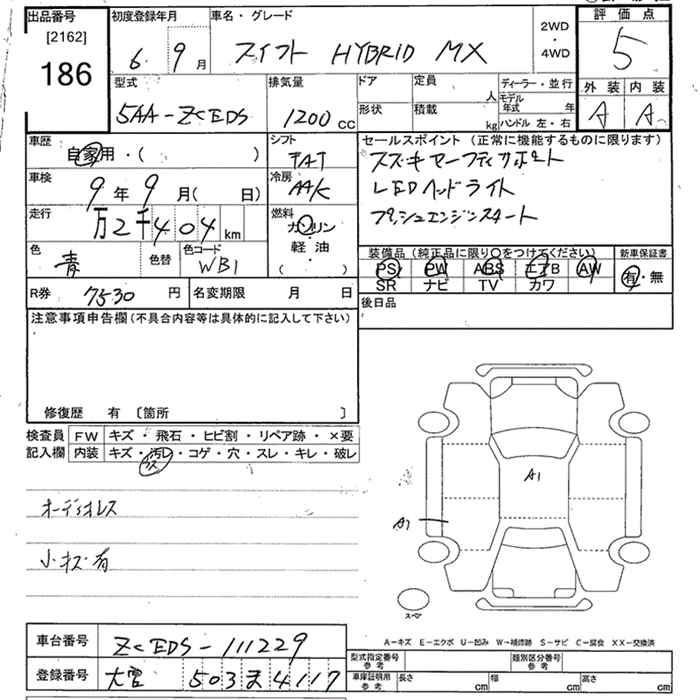 出品番号
[2162]
186
初度登録年月
6 9月
車名・グレード
スイフト HYBRID MX
2WD
・
4WD
評価点
5
外装 内装
A A
型式
5AA-ZCEDS
排気量
1200 cc
ドア
形状
定員
人
積載
kg
ディーラー・並行
モデル年式 年
ハンドル 左・右
車歴
自家用・( )
シフト
FAT
車検
9年9月( 日)
冷房
AAC
走行
万2千404km
燃料
ガソリン
・
軽油
( )
色
青
色替
色コード
WB1
R券 7530 円
名変期限 月 日
セールスポイント(正常に機能するものに限ります)
スズキセーフティサポート
LEDヘッドライト
プッシュエンジンスタート
装備品(純正品に限り○をつけてください)
PS PW ABS エアB AW
SR ナビ TV カワ
新車保証書
有・無
後日品
注意事項申告欄(不具合内容等は具体的に記入して下さい)
修復歴 有 〔箇所 〕
検査員記入欄
FW キズ・飛石・ヒビ割・リペア跡・×要
内装 キズ・汚レ・コゲ・穴・スレ・キレ・破レ
オーディオレス
小キズ有
A1
A1
スペア
A-キズ E-エクボ U-凹み W-補修跡 S-サビ C-腐食 XX-交換済
車台番号 ZCEDS-111229
登録番号 大宮 503 ま 4117
型式指定番号
参考
類別区分番号
参考
車庫証明用
参考
長さ cm 幅 cm 高さ cm